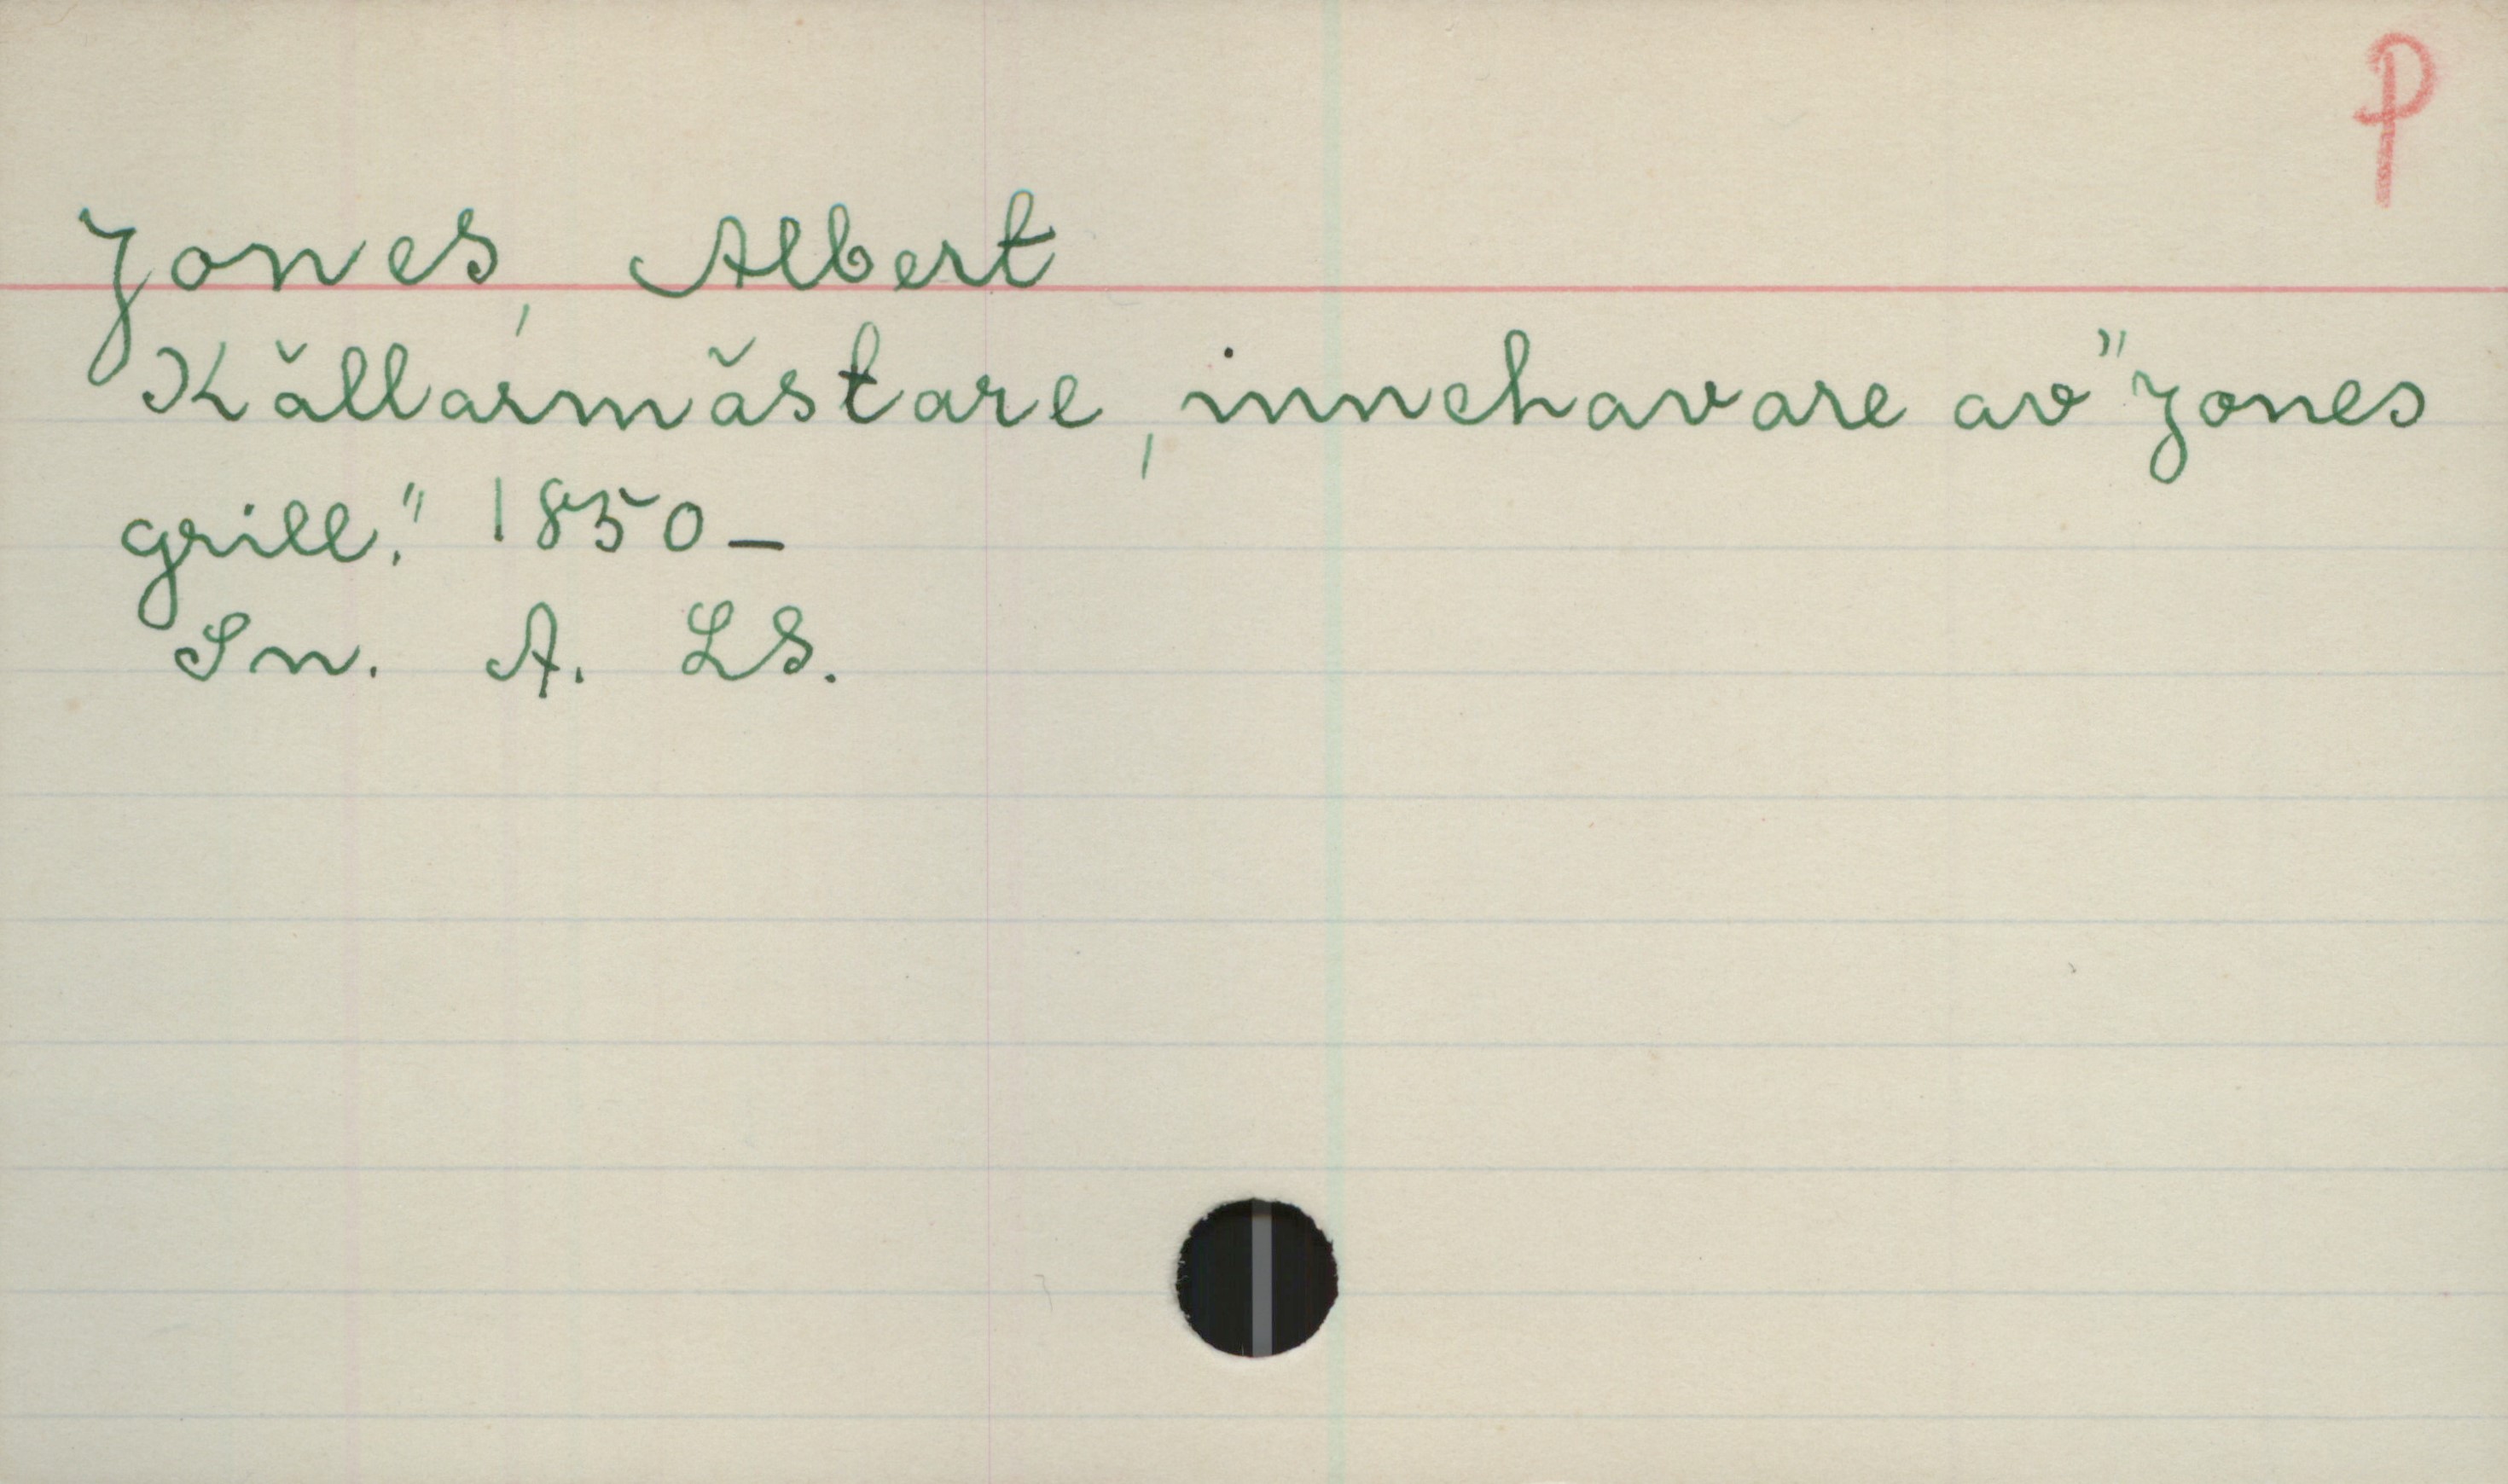 P
Jones, Albert
Källarmästare, innehavare av "Jones
grill." 1850–
Sn. A. LS.